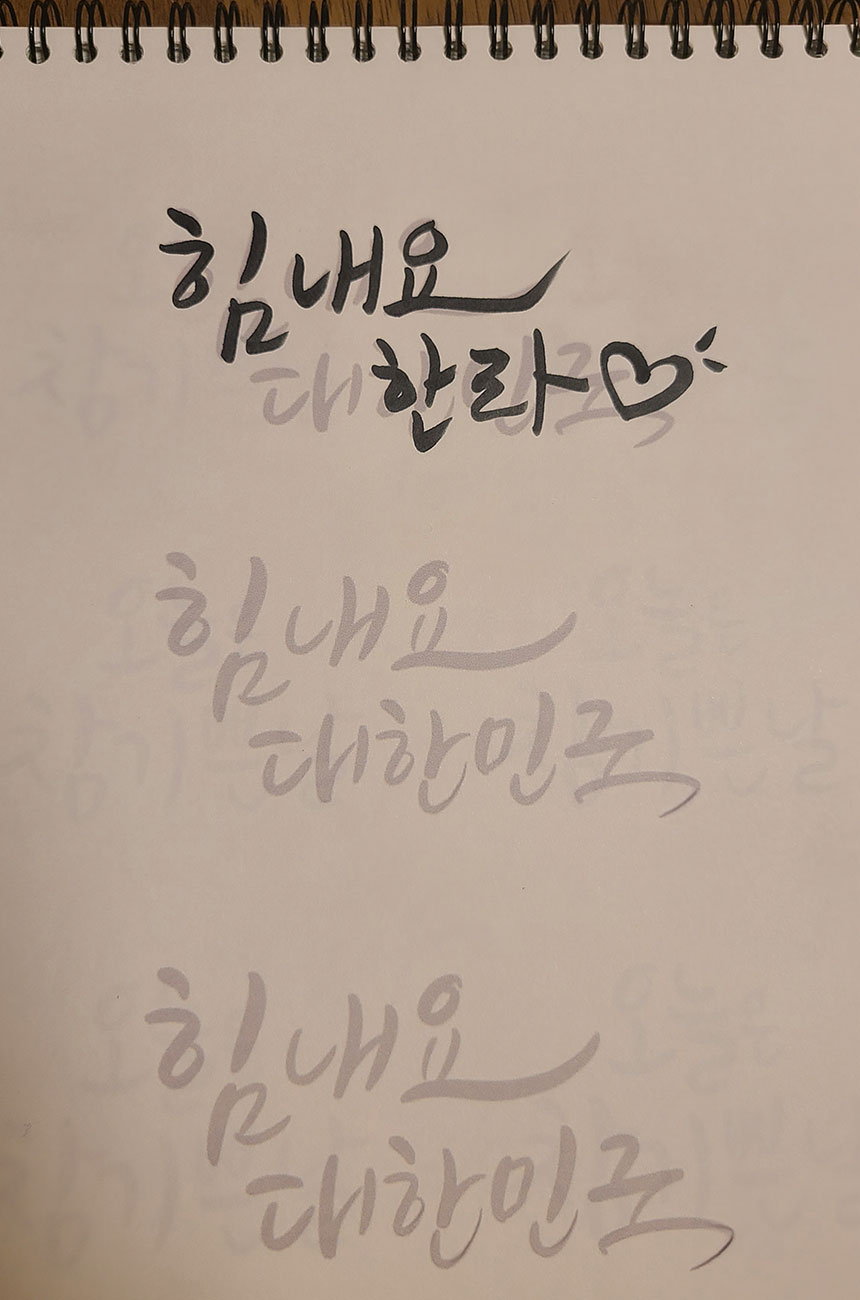 힘내요
한라♡
힘내요
대한민국
힘내요
대한민국